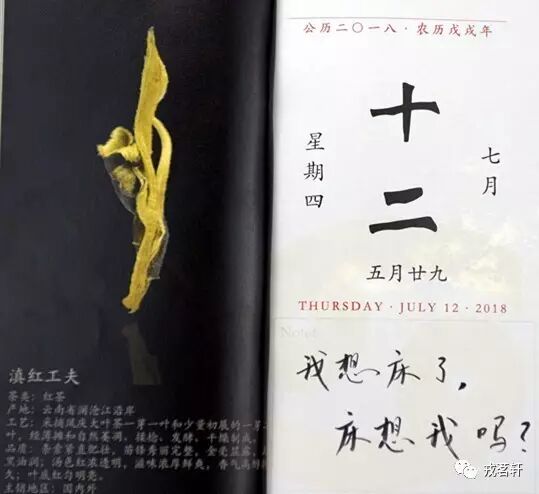 滇红工夫
茶类：红茶
产地：云南省澜沧江沿岸
工艺：采摘凤庆大叶茶一芽一叶和少量初展的一芽
叶，经薄摊和自然萎凋，揉捻、发酵、干燥制成。
品质：条索紧直肥壮，苗锋秀丽完整，金毫显露，
黑油润；汤色红浓透明，滋味浓厚鲜爽，香气高
久；叶底红匀明亮。
主销地区：国内外
公历二〇一八·农历戊戌年
十二
七月
星期四
五月廿九
THURSDAY · JULY 12 · 2018
Note:
我想床了，
床想我吗？
戎茗轩